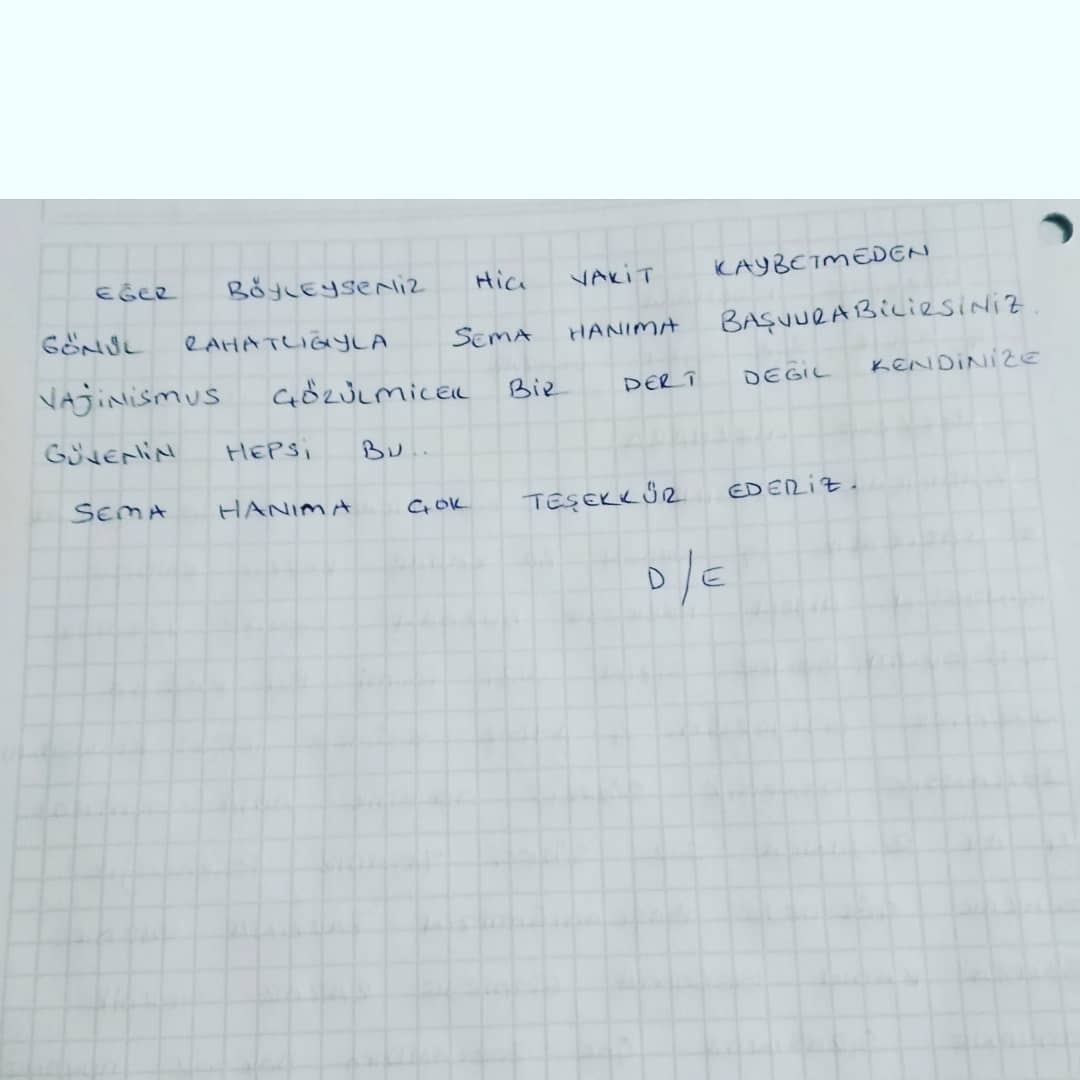 EĞER BÖYLEYSENİZ HİÇ VAKİT KAYBETMEDEN
GÖNÜL RAHATLIĞIYLA SEMA HANIMA BAŞVURABİLİRSİNİZ.
VAJİNİSMUS ÇÖZÜLMİCEK BİR DERT DEĞİL KENDİNİZE
GÜVENİN HEPSİ BU..
SEMA HANIMA ÇOK TEŞEKKÜR EDERİZ.
D/E